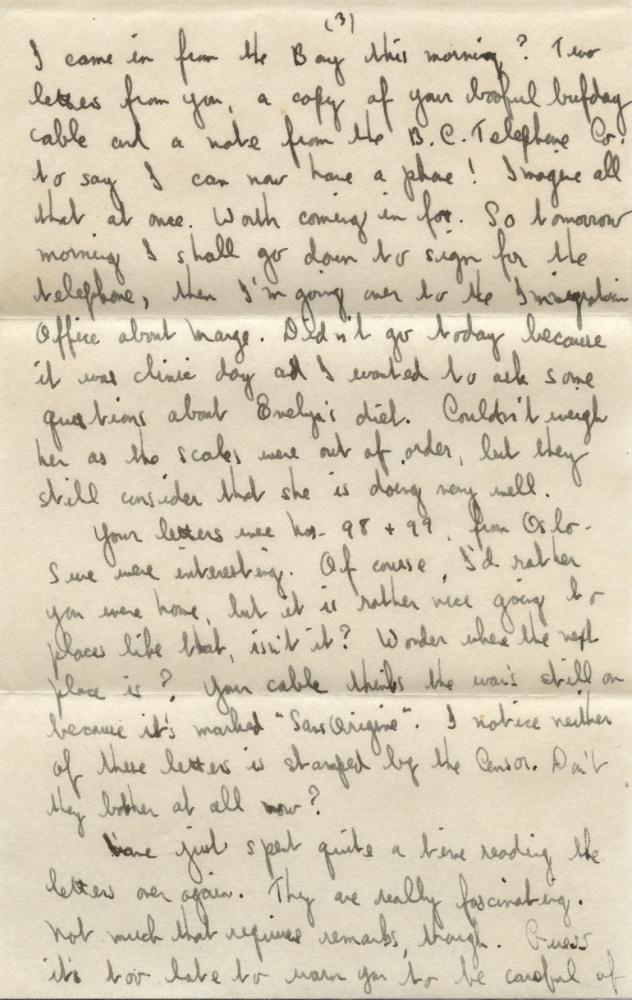 (3)
I came in from the Bay this morning? Two
letters from you, a copy of your booful bufday
cable and a note from the B.C. Telephone Co.
to say I can now have a phone! Imagine all
that at once. Worth coming in for. So tomorrow
morning I shall go down to sign for the
telephone, then I'm going over to the Immigration
Office about Marge. Didn't go today because
it was clinic day and I wanted to ask some
questions about Evelyn's diet. Couldn't weigh
her as the scales were out of order, but they
still consider that she is doing very well.
Your letters were nos. 98 + 99, from Oslo.
Sure were interesting. Of course, I'd rather
you were home, but it is rather nice going to
places like that, isn't it? Wonder where the next
place is? Your cable thinks the war's still on
because it's marked "Sans Origine". I notice neither
of these letters is stamped by the Censor. Don't
they bother at all now?
Have just spent quite a time reading the
letters over again. They are really fascinating.
Not much that requires remarks, though. Guess
it's too late to warn you to be careful of